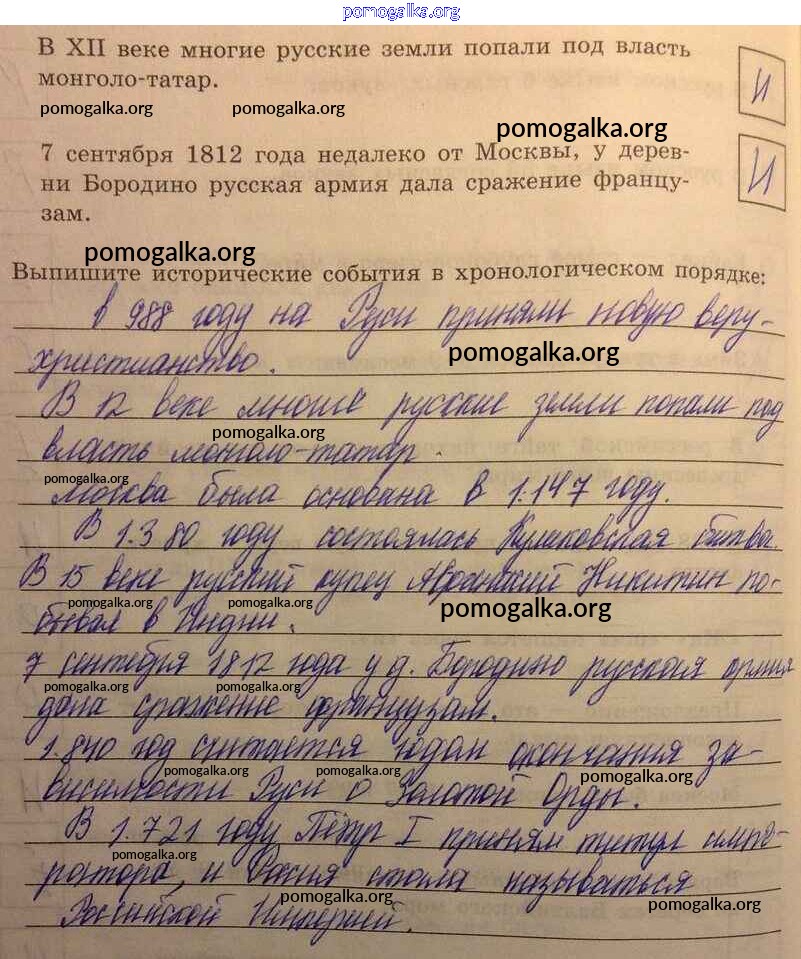 pomogalka.org
В XII веке многие русские земли попали под власть
монголо-татар.
И
pomogalka.org pomogalka.org
pomogalka.org
7 сентября 1812 года недалеко от Москвы, у дерев-
ни Бородино русская армия дала сражение францу-
зам.
И
pomogalka.org
Выпишите исторические события в хронологическом порядке:
в 988 году на Руси приняли новую веру-
христианство.
pomogalka.org
В 12 веке многие русские земли попали под
pomogalka.org
власть монголо-татар.
pomogalka.org
Москва была основана в 1.147 году.
В 1.380 году состоялась Куликовская битва.
В 15 веке русский купец Афанасий Никитин по-
pomogalka.org pomogalka.org pomogalka.org
бывал в Индии.
7 сентября 1812 года у д. Бородино русская армия
pomogalka.org pomogalka.org
дала сражение французам.
1.840 год считается годом окончания за-
pomogalka.org pomogalka.org pomogalka.org
висимости Руси о Золотой Орды.
В 1.721 году Пётр I принял титул импе-
pomogalka.org
ратора, и Россия стала называться
pomogalka.org pomogalka.org
Российской Империей.